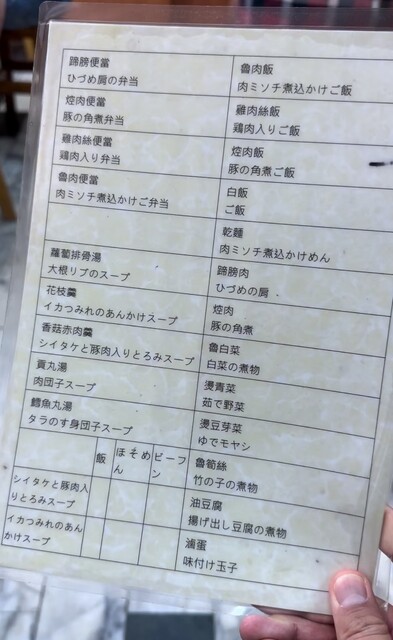 蹄膀便當
ひづめ肩の弁当
焢肉便當
豚の角煮弁当
雞肉絲便當
鶏肉入り弁当
魯肉便當
肉ミソチ煮込かけご弁当
蘿蔔排骨湯
大根リブのスープ
花枝羹
イカつみれのあんかけスープ
香菇赤肉羹
シイタケと豚肉入りとろみスープ
貢丸湯
肉団子スープ
鱈魚丸湯
タラのすり身団子スープ
飯
ほそめ
ん
ビーフ
ン
シイタケと豚肉入
りとろみスープ
イカつみれのあん
かけスープ
魯肉飯
肉ミソチ煮込かけご飯
雞肉絲飯
鶏肉入りご飯
焢肉飯
豚の角煮ご飯
白飯
ご飯
乾麵
肉ミソチ煮込かけめん
蹄膀肉
ひづめの肩
焢肉
豚の角煮
魯白菜
白菜の煮物
燙青菜
茹で野菜
燙豆芽菜
ゆでモヤシ
魯筍絲
竹の子の煮物
油豆腐
揚げ出し豆腐の煮物
滷蛋
味付け玉子